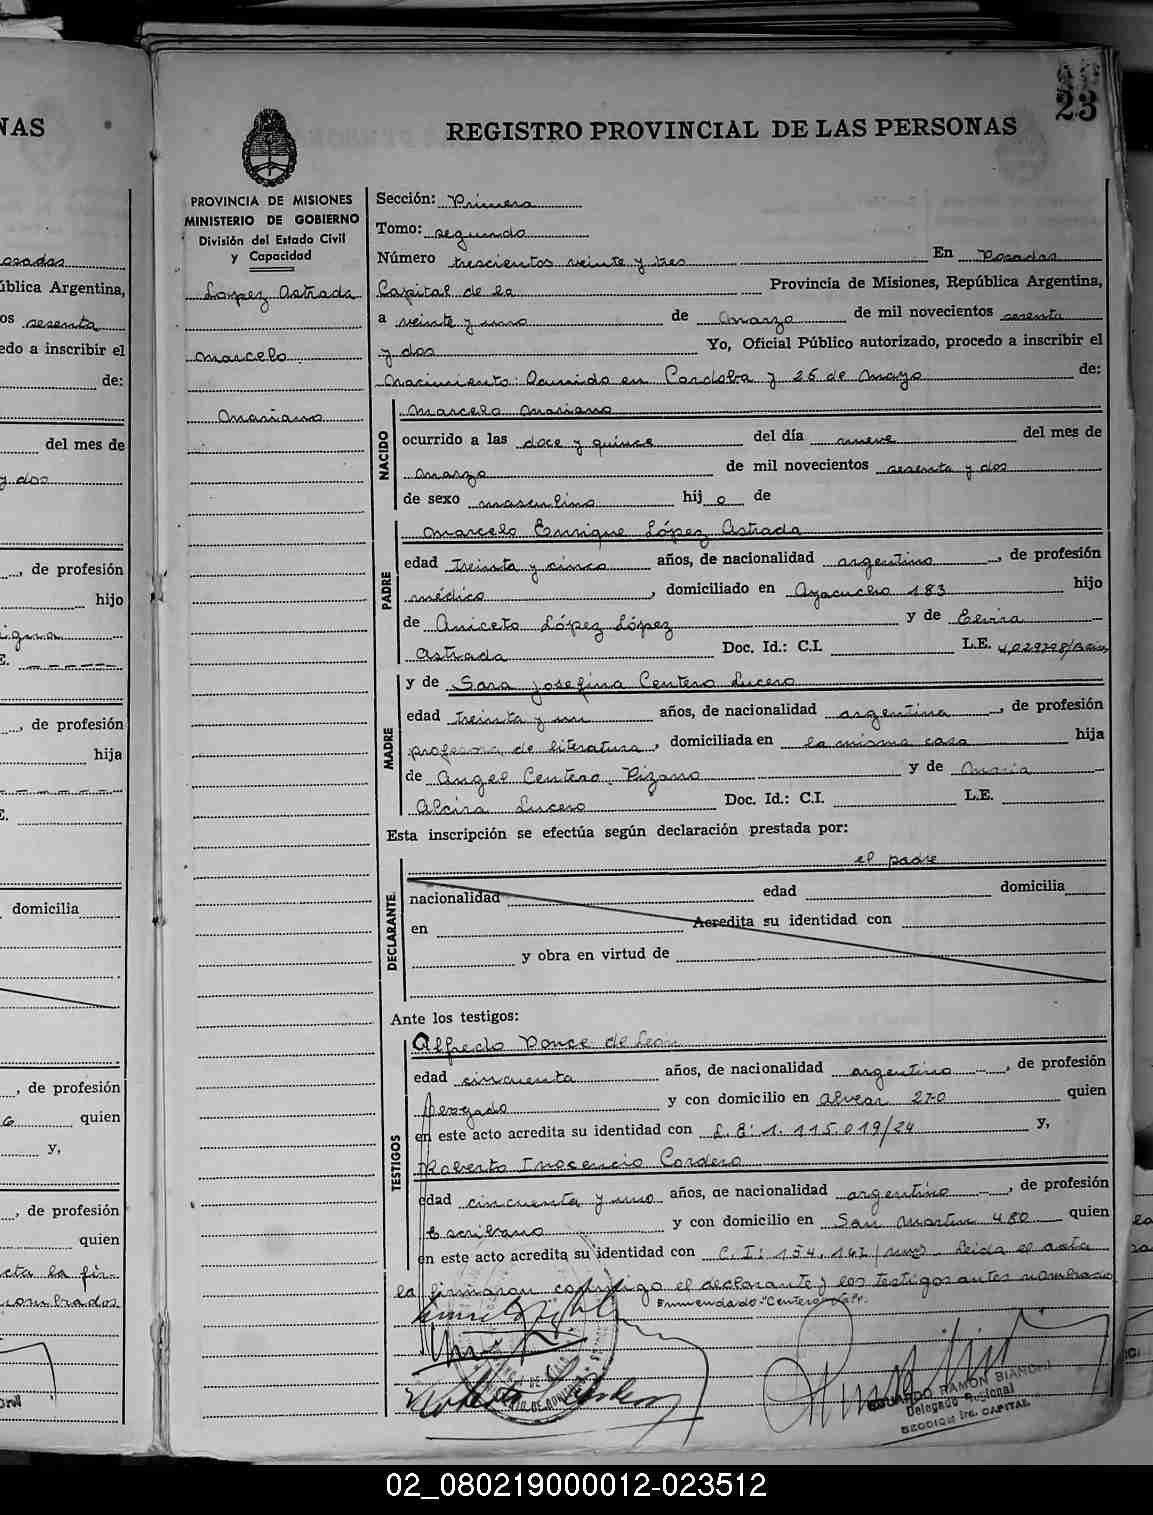 NAS
osadas
ública Argentina,
os sesenta
edo a inscribir el
de:
del mes de
y dos
, de profesión
hijo
E.
, de profesión
hija
E.
domicilia
, de profesión
quien
y,
, de profesión
quien
cta la fir-
nombrados
23
REGISTRO PROVINCIAL DE LAS PERSONAS
PROVINCIA DE MISIONES
MINISTERIO DE GOBIERNO
División del Estado Civil
y Capacidad
Lopez Astrada
Marcelo
Mariano
Sección: Primera
Tomo: segundo
Número trescientos veinte y tres En Posadas
Capital de la Provincia de Misiones, República Argentina,
a veinte y uno de Marzo de mil novecientos sesenta
y dos Yo, Oficial Público autorizado, procedo a inscribir el
Nacimiento: Ocurrido en Cordoba y 25 de Mayo de:
NACIDO
Marcelo Mariano
ocurrido a las doce y quince del día nueve del mes de
Marzo de mil novecientos sesenta y dos
de sexo masculino hij o de
PADRE
Marcelo Enrique López Astrada
edad treinta y cinco años, de nacionalidad argentino, de profesión
médico, domiciliado en Ayacucho 183 hijo
de Aniceto López López y de Elvira
Astrada Doc. Id.: C.I. L.E.
MADRE
y de Sara Josefina Centeno Lucero
edad treinta y un años, de nacionalidad argentina, de profesión
profesora de literatura, domiciliada en la misma casa hija
de Angel Centeno Pizarro y de Maria
Alcira Lucero Doc. Id.: C.I. L.E.
Esta inscripción se efectúa según declaración prestada por:
DECLARANTE
el padre
nacionalidad edad domicilia
en Acredita su identidad con
y obra en virtud de
Ante los testigos:
TESTIGOS
Alfredo Ponce de León
edad cincuenta años, de nacionalidad argentino, de profesión
Abogado y con domicilio en Alvear 270 quien
en este acto acredita su identidad con L.E: 1.115.019/24 y,
Roberto Inocencio Cordero
edad cincuenta y uno años, de nacionalidad argentino, de profesión
Escribano y con domicilio en San Martin 480 quien
en este acto acredita su identidad con C.I: Leida el acta
la firmaron conmigo el declarante y los testigos antes nombrados
Enmendado: "Centeno" Vale.
EDUARDO RAMON BIANCHI
Delegado Regional
SECCION 1ra. CAPITAL
02_080219000012-023512